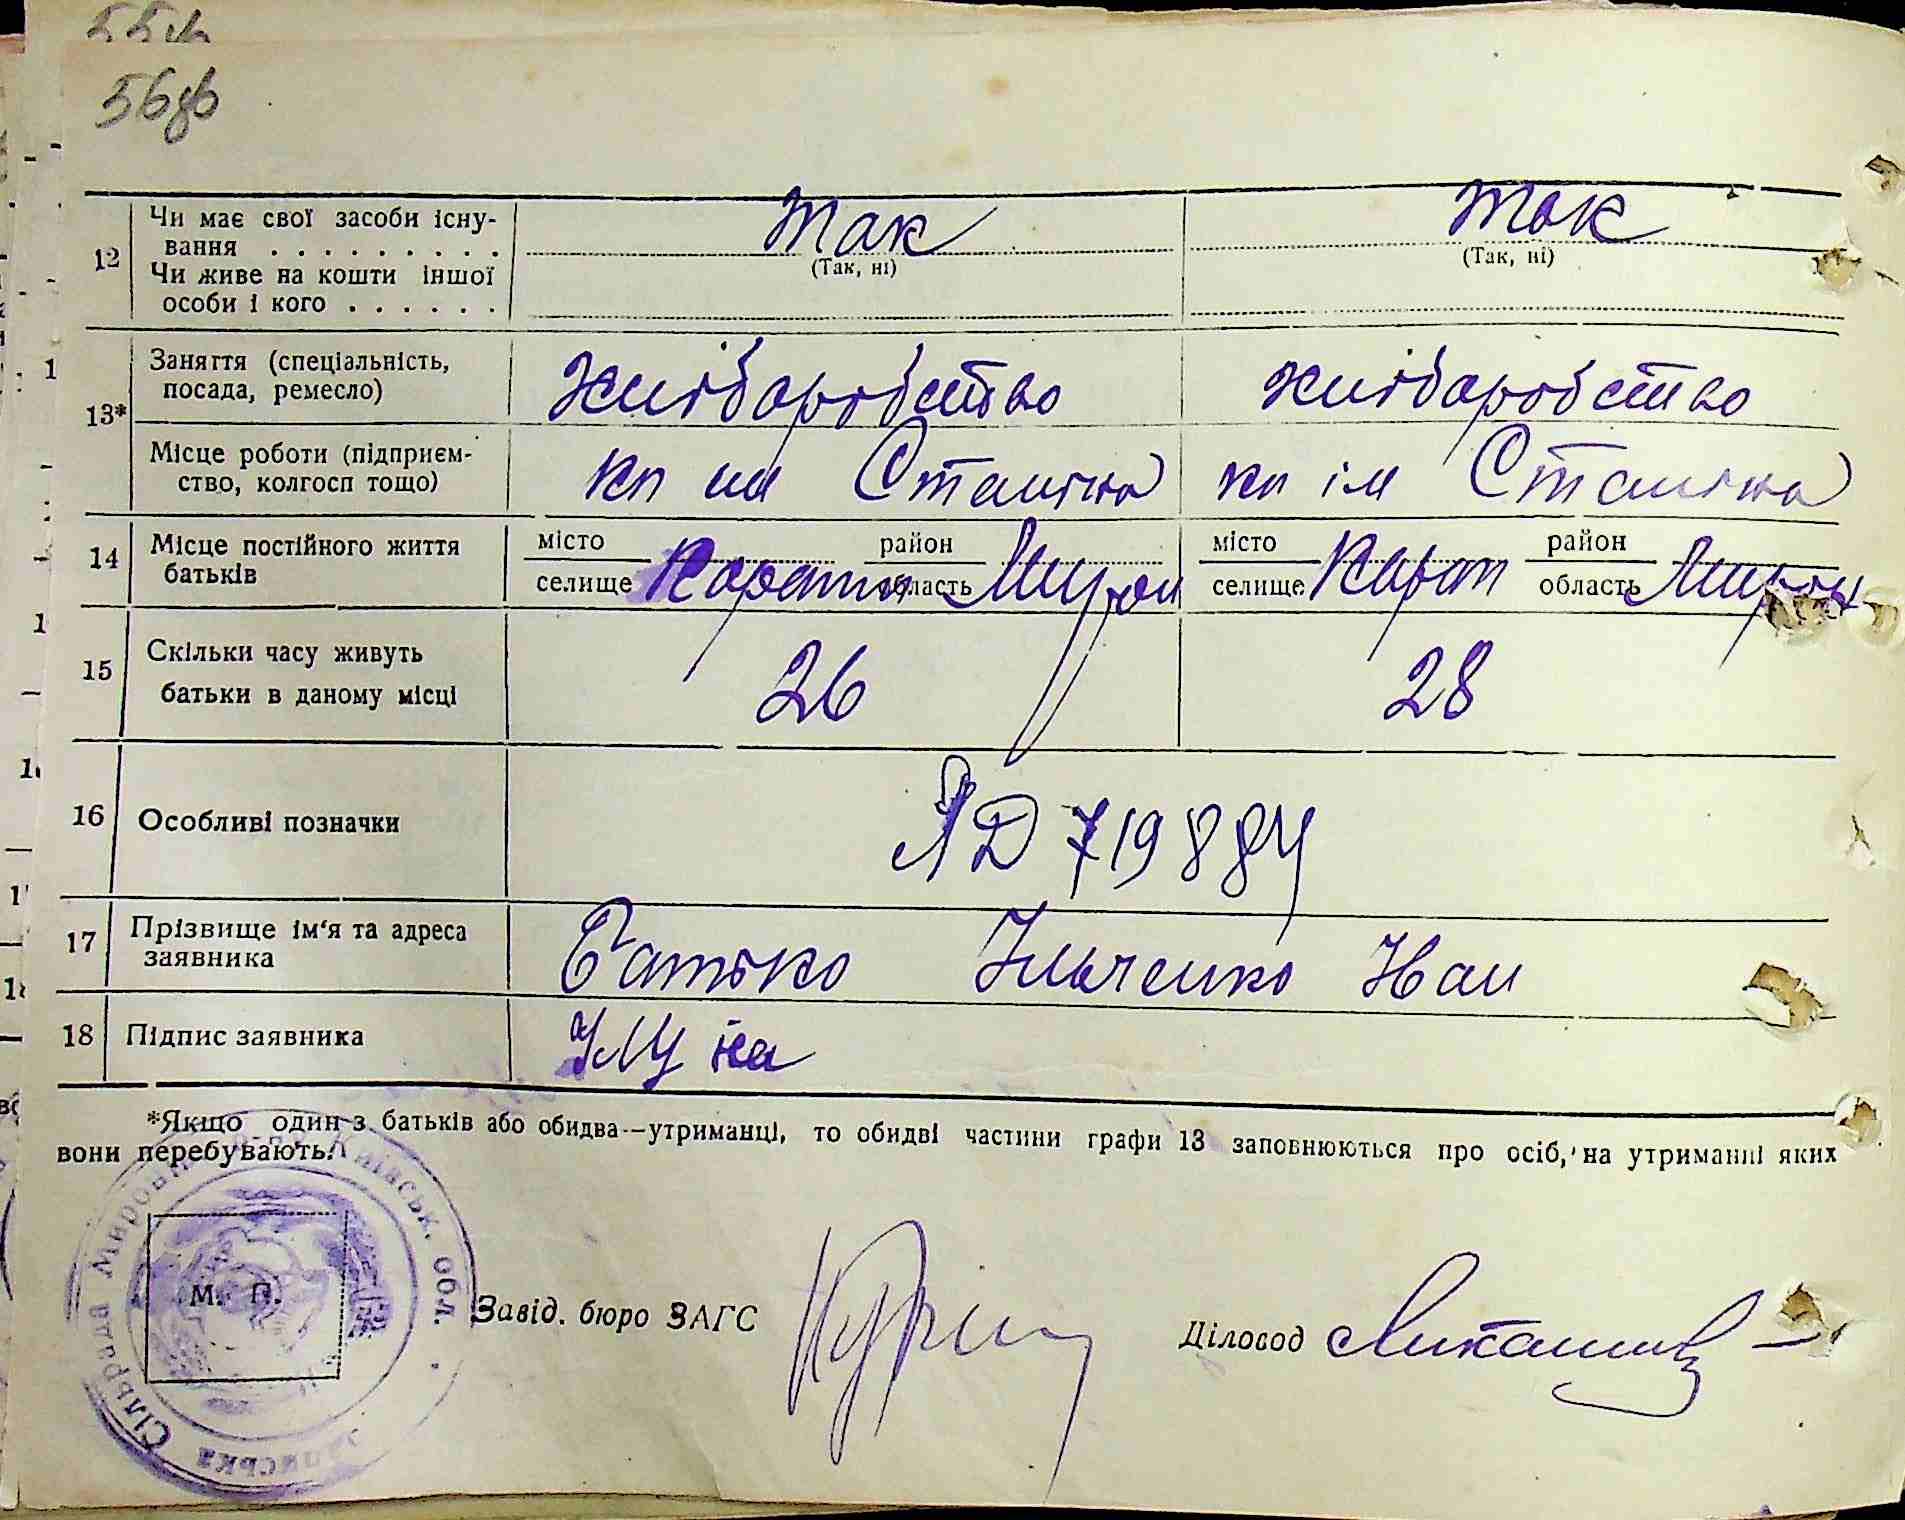 55зв
56зв
12 Чи має свої засоби існу- Так Так
вання . . . . . . . . . (Так, ні) (Так, ні)
Чи живе на кошти іншої
особи і кого . . . . . .
13* Заняття (спеціальність, хлібаробство хлібаробство
посада, ремесло)
Місце роботи (підприєм- кп ім Сталіна кп ім Сталіна
ство, колгосп тощо)
14 Місце постійного життя місто район місто район
батьків селище Карапиши область Мирон селище Карап область Мирон
15 Скільки часу живуть 26 28
батьки в даному місці
16 Особливі позначки ЯД 719884
17 Прізвище ім'я та адреса Батько Ильченко Иван
заявника
18 Підпис заявника
*Якщо один з батьків або обидва—утриманці, то обидві частини графи 13 заповнюються про осіб, на утриманні яких
вони перебувають.
Сільрада Миронів. р-ну Київськ. обл.
М. П.
Завід. бюро ЗАГС
Діловод